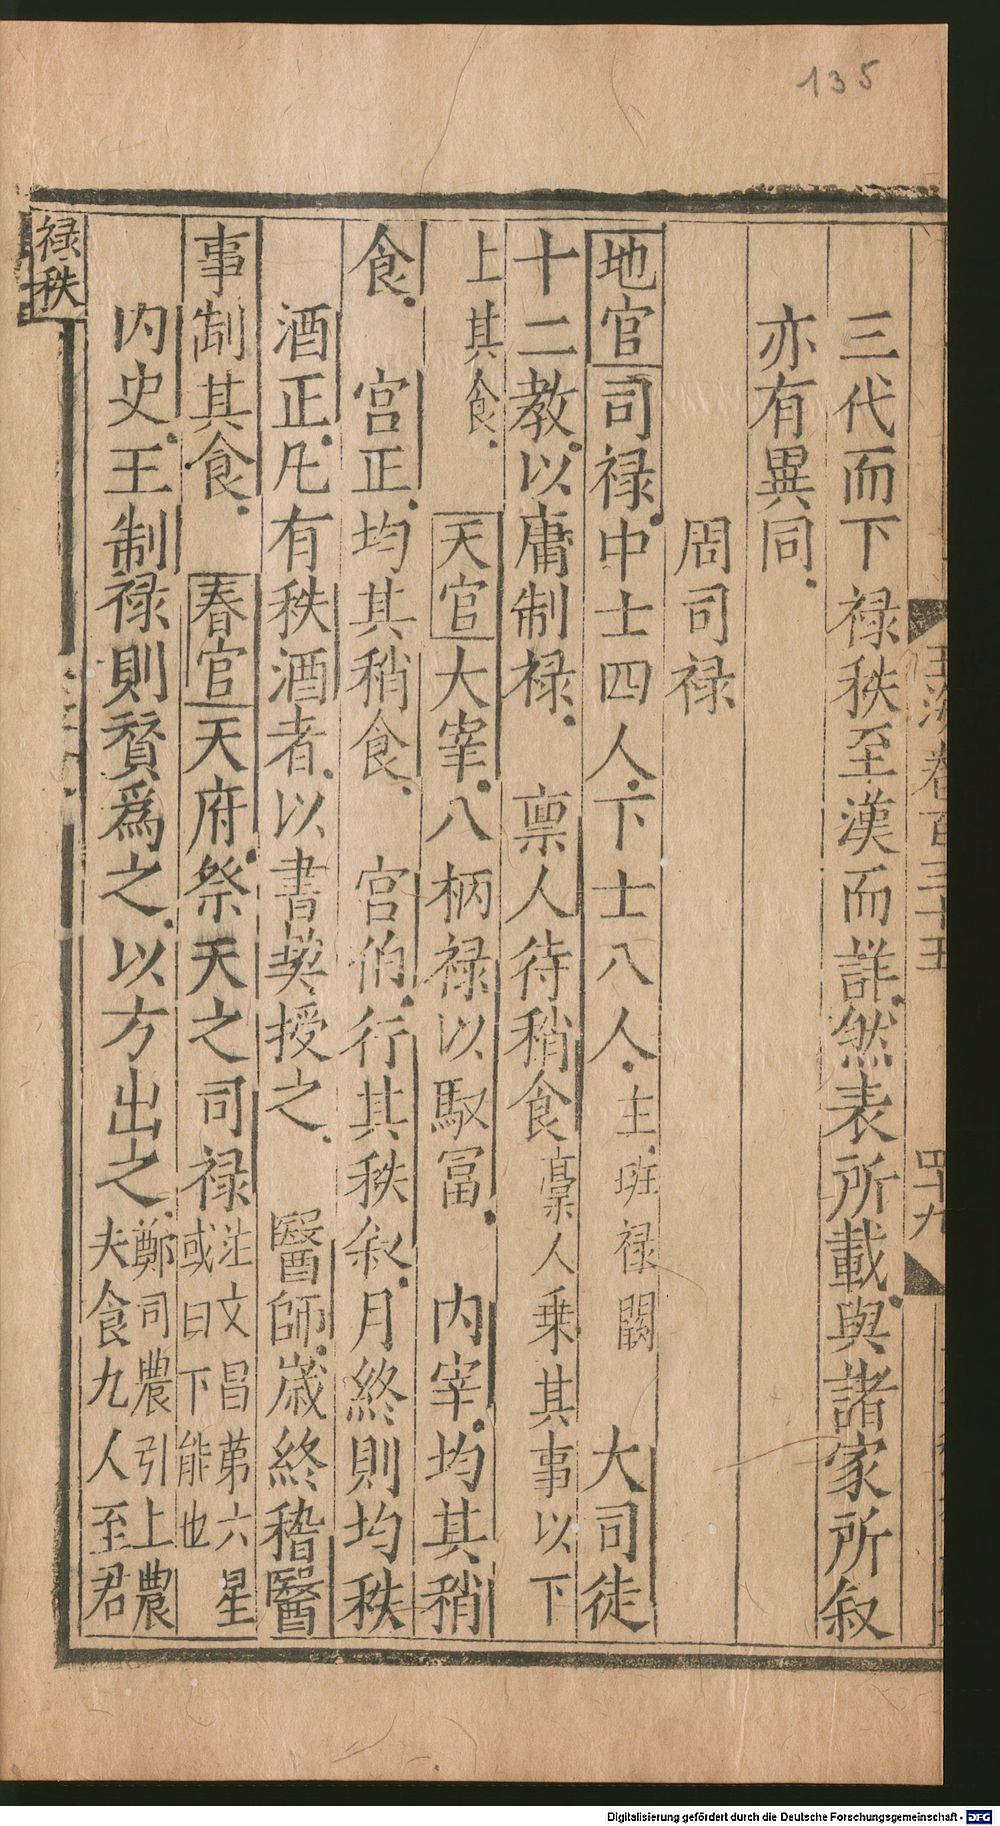 135
玉海卷百三十五
四十九
三代而下祿秩至漢而詳然表所載與諸家所叙
亦有異同
周司祿
地官司祿中士四人下士八人主班祿闕 大司徒
十二教以庸制祿 稟人待稍食稾人乗其事以下
上其食 天官大宰八柄祿以馭冨 内宰均其稍
食 宮正均其稍食 宮伯行其秩叙月終則均秩
酒正凡有秩酒者以書契授之 醫師歲終稽醫
事制其食 春官天府祭天之司祿注文昌苐六星
或曰下能也
内史王制祿則贊爲之以方出之鄭司農引上農
夫食九人至君
祿秩
Digitalisierung gefördert durch die Deutsche Forschungsgemeinschaft - DFG